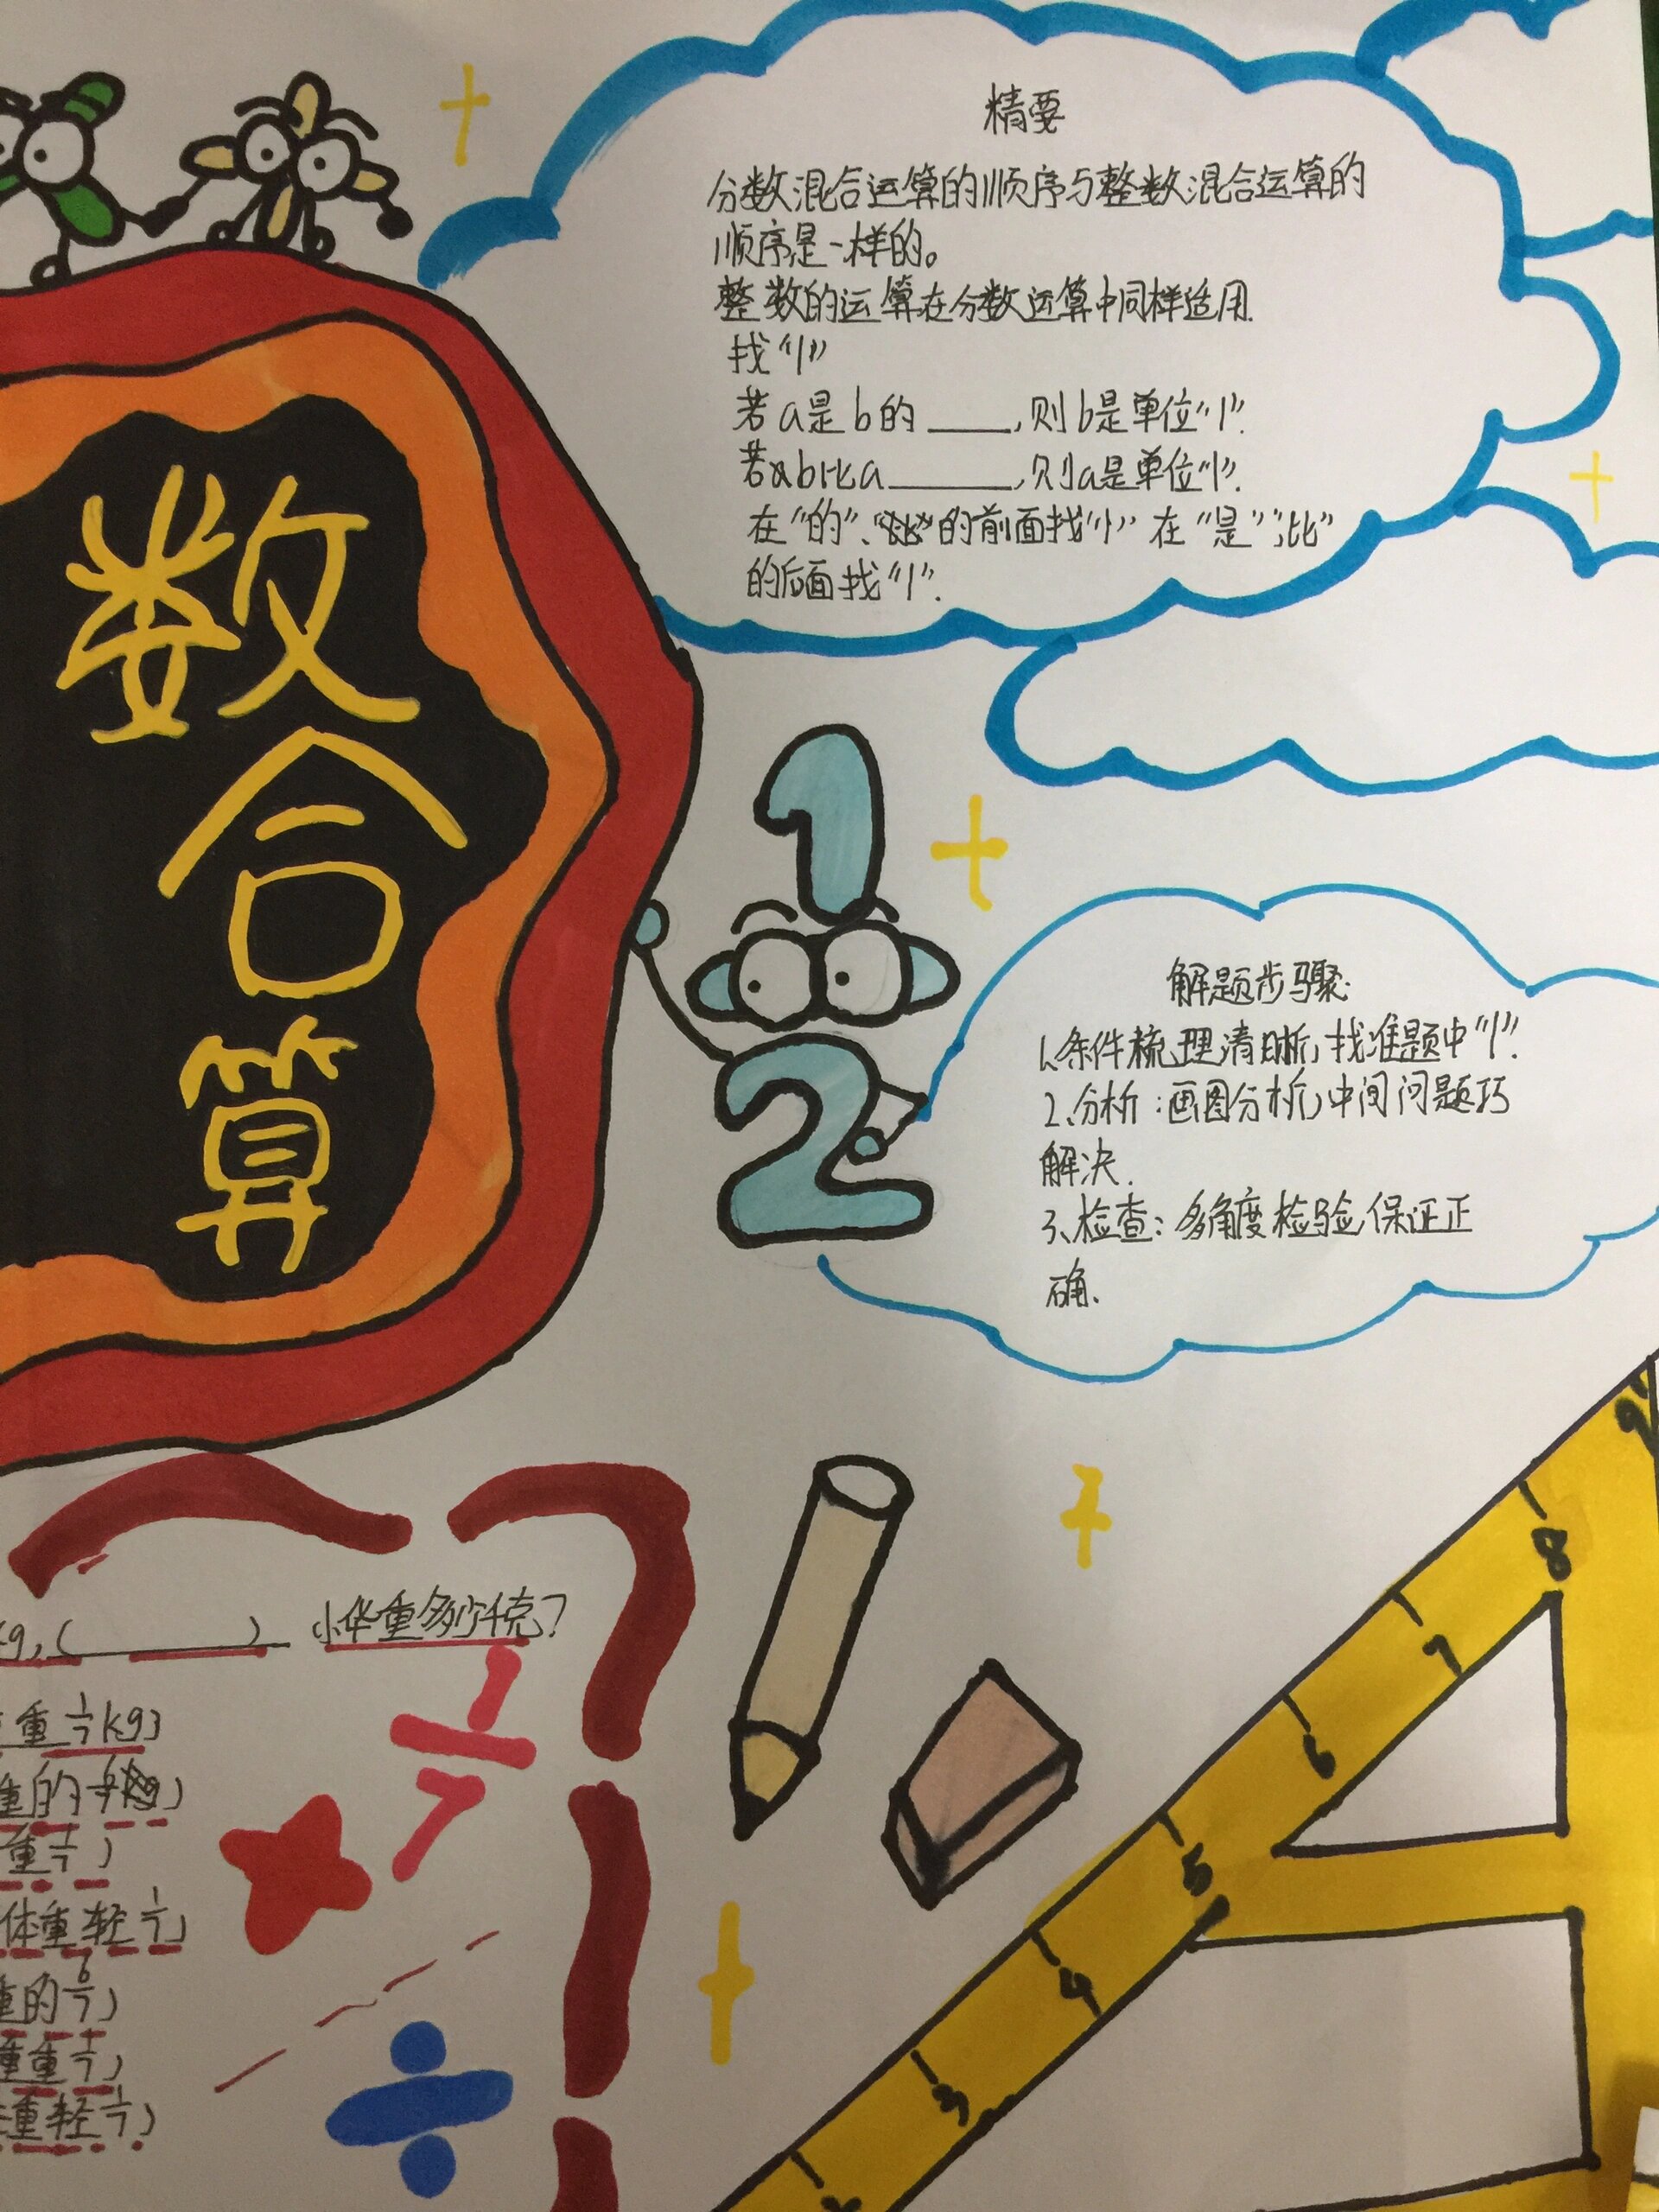 精要
分数混合运算的顺序与整数混合运算的
顺序是一样的。
整数的运算在分数运算中同样适用.
找“1”
若a是b的____,则b是单位“1”.
若b比a______,则a是单位“1”.
在“的”、的前面找“1” 在“是”“比”
的后面找“1”.
数
合
算
解题步骤:
1、条件梳理清晰,找准题中“1”.
2、分析:画图分析,中间问题巧
解决.
3、检查:多角度检验保证正
确.
1
2
g,(        ) 小华重多少千克?
重1/7kg)
重的)
重1/7)
体重轻1/7)
重的6/7)
重重1/7)
重轻1/7)
1/7
÷
9
8
7
6
5
4
3